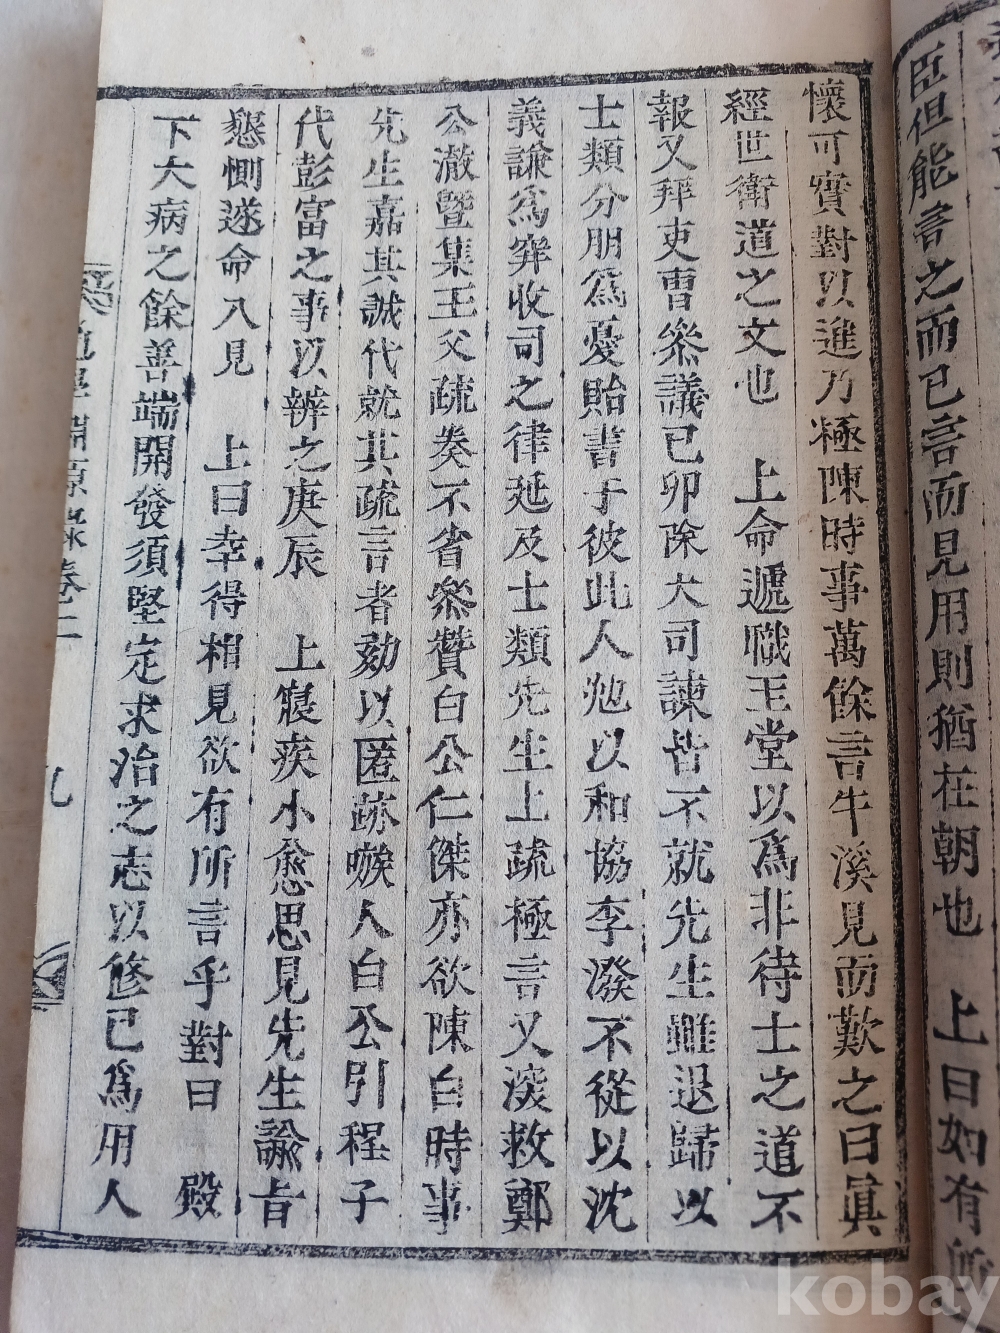 臣但能言之而已言而見用則猶在朝也　上曰如有所
懷可實對以進乃極陳時事萬餘言牛溪見而歎之曰眞
經世衛道之文也　上命遞職玉堂以爲非待士之道不
報又拜吏曹叅議已卯除大司諫皆不就先生雖退歸以
士類分朋爲憂貽書于彼此人勉以和協李潑不從以沈
義謙爲窂收司之律延及士類先生上疏極言又深救鄭
公澈曁集王父疏奏不省叅贊白公仁傑亦欲陳白時事
先生嘉其誠代就其疏言者劾以匿跡嗾人白公引程子
代彭富之事以辨之庚辰　上寢疾小愈思見先生諭旨
懇惻遂命入見　上曰幸得相見欲有所言乎對曰　殿
下大病之餘善端開發須堅定求治之志以修已爲用人
道學淵源录卷二
九
kobay